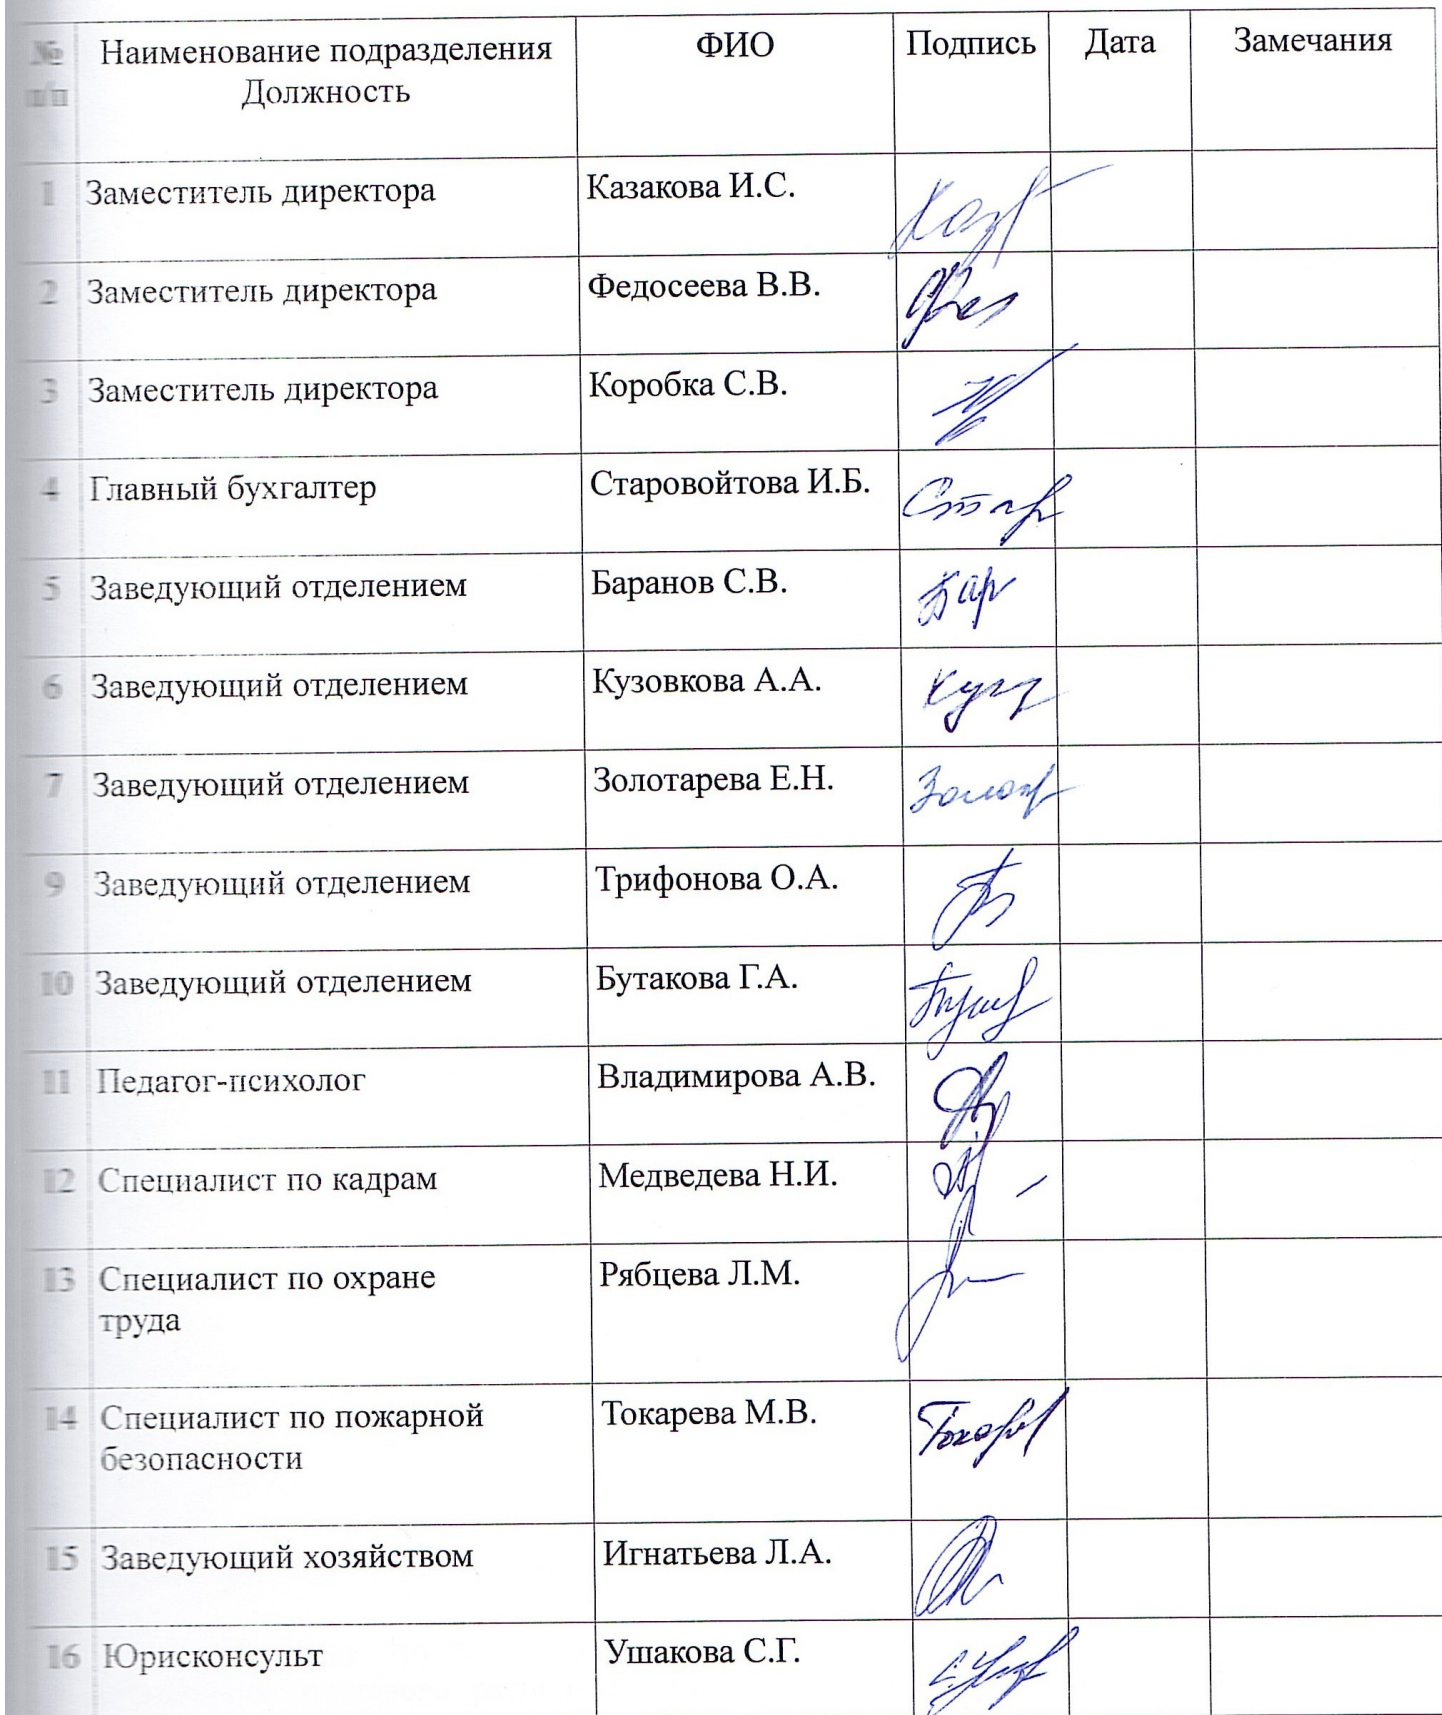 № п/п Наименование подразделения Должность ФИО Подпись Дата Замечания
1 Заместитель директора Казакова И.С.
2 Заместитель директора Федосеева В.В.
3 Заместитель директора Коробка С.В.
4 Главный бухгалтер Старовойтова И.Б.
5 Заведующий отделением Баранов С.В.
6 Заведующий отделением Кузовкова А.А.
7 Заведующий отделением Золотарева Е.Н.
9 Заведующий отделением Трифонова О.А.
10 Заведующий отделением Бутакова Г.А.
11 Педагог-психолог Владимирова А.В.
12 Специалист по кадрам Медведева Н.И.
13 Специалист по охране Рябцева Л.М.
труда
14 Специалист по пожарной Токарева М.В.
безопасности
15 Заведующий хозяйством Игнатьева Л.А.
16 Юрисконсульт Ушакова С.Г.